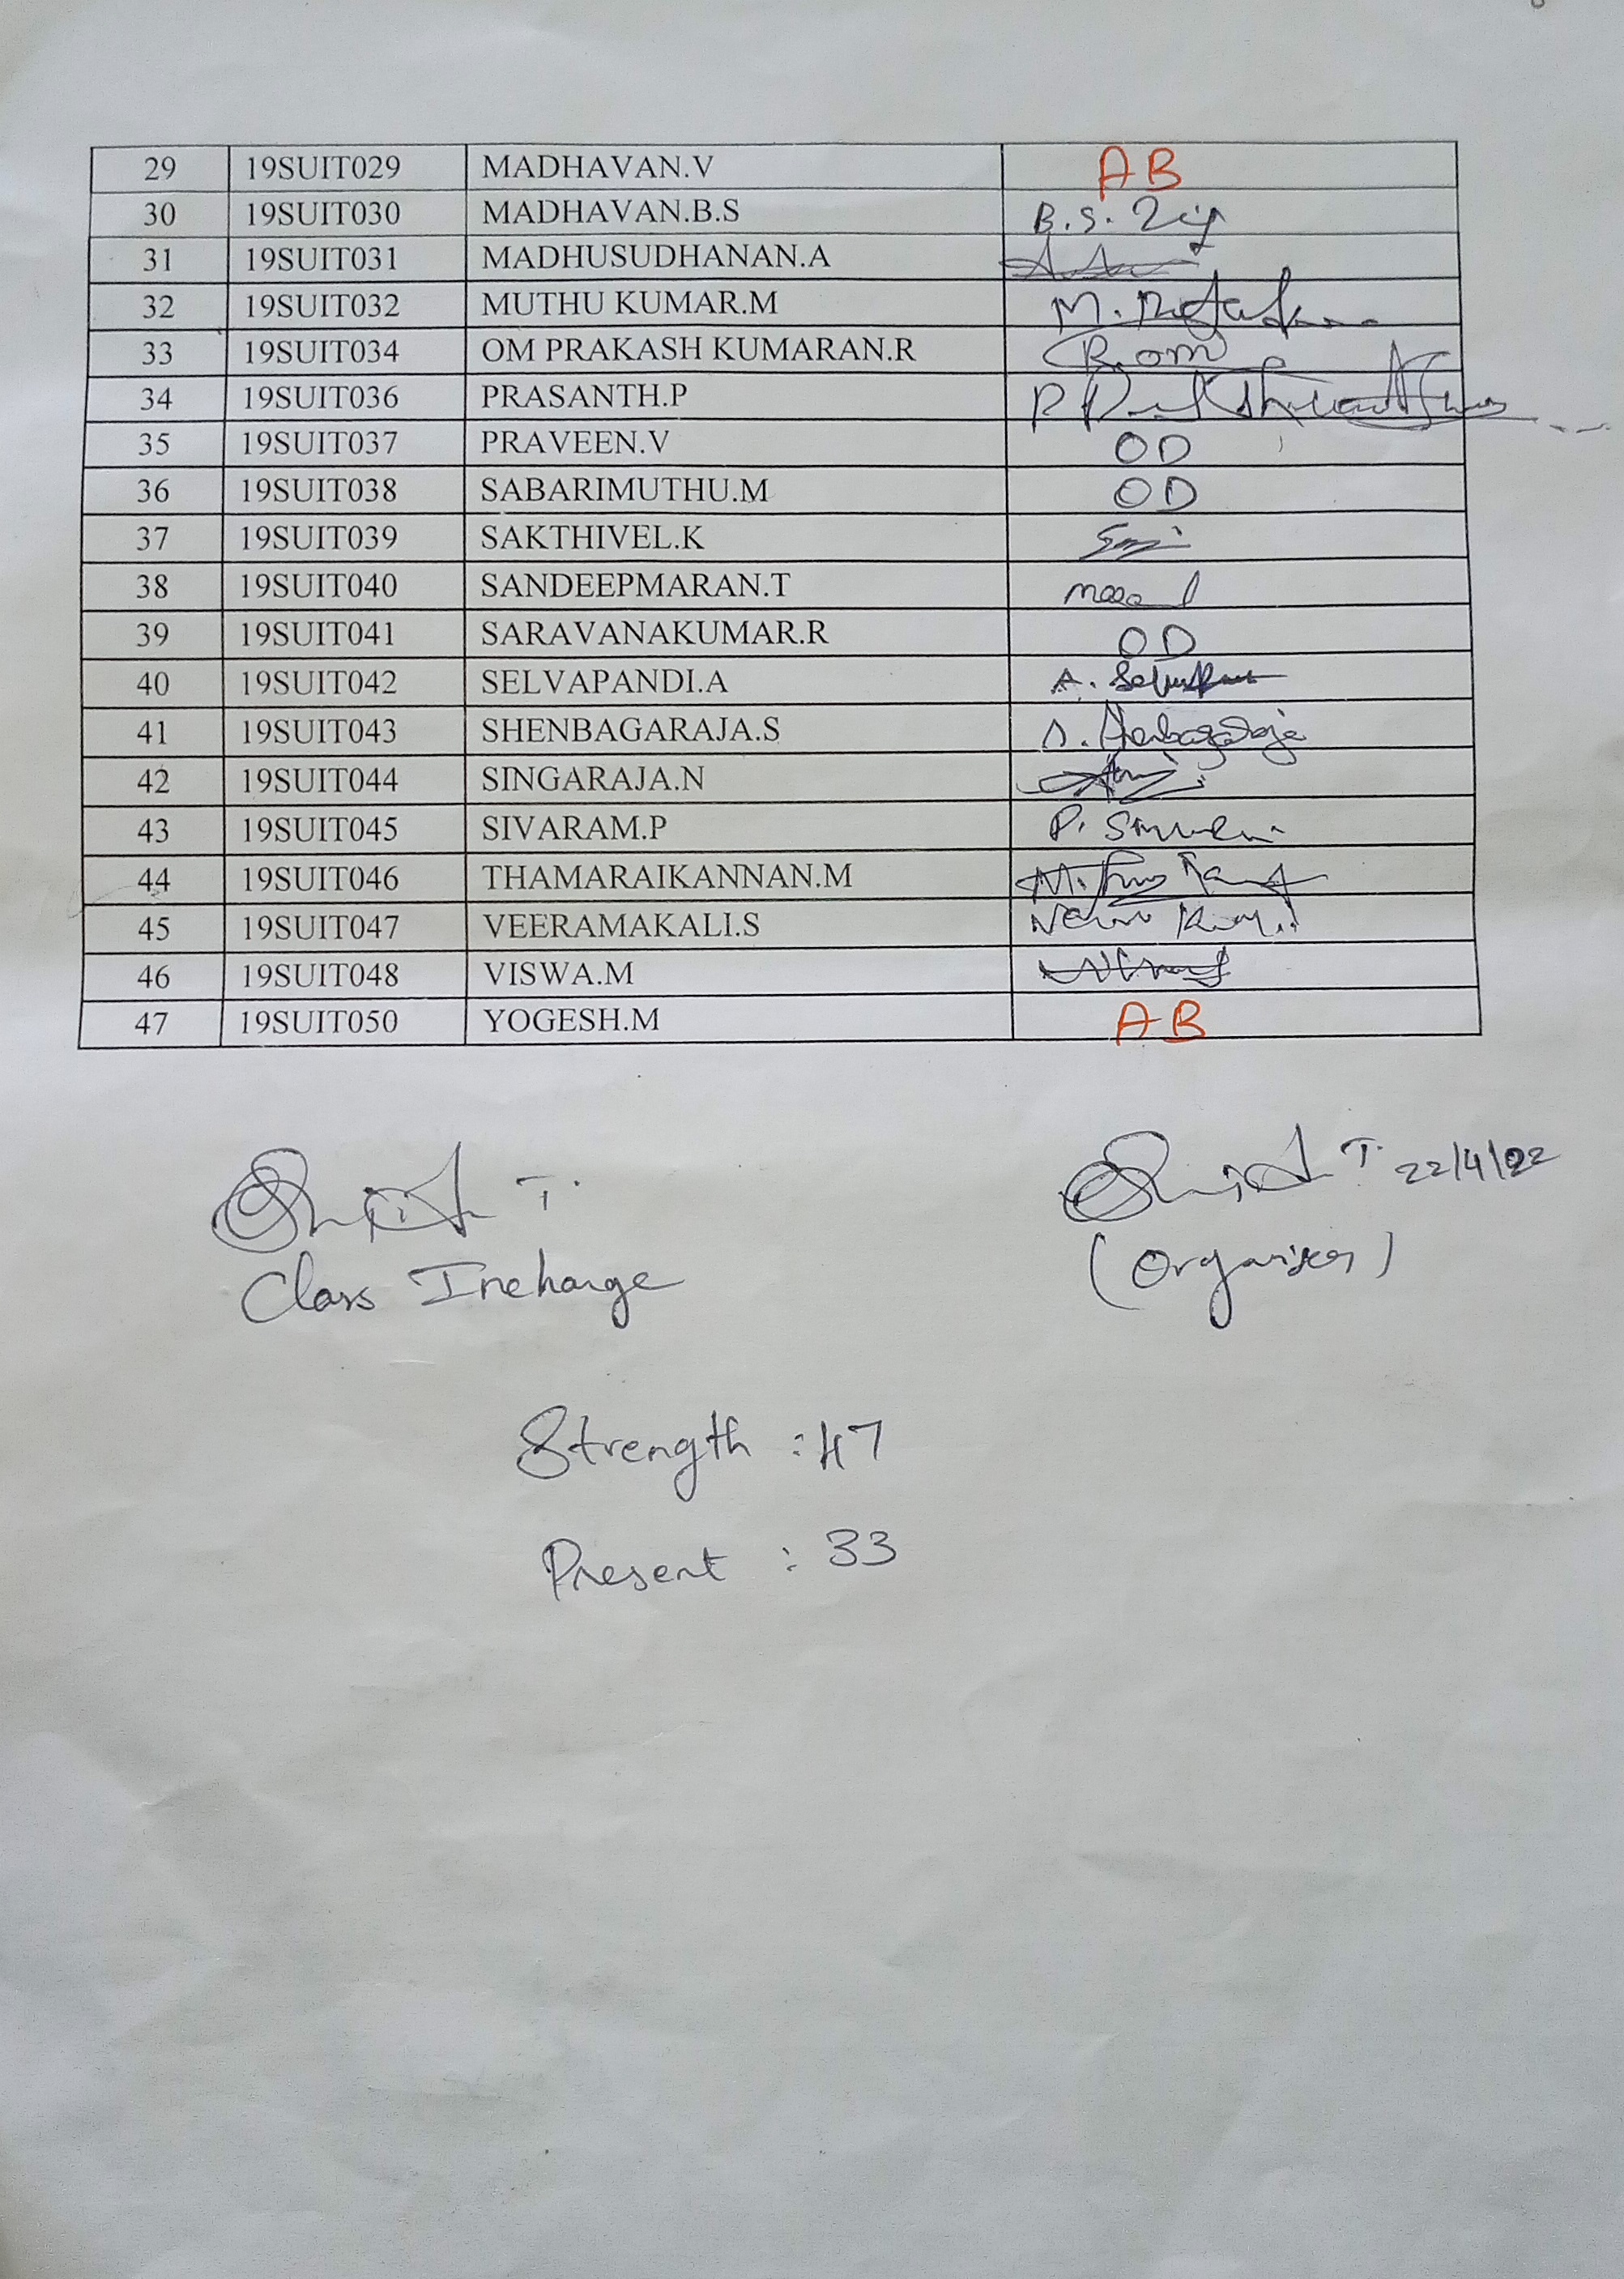 29 19SUIT029 MADHAVAN.V AB
30 19SUIT030 MADHAVAN.B.S B.S.
31 19SUIT031 MADHUSUDHANAN.A
32 19SUIT032 MUTHU KUMAR.M M.
33 19SUIT034 OM PRAKASH KUMARAN.R R.om
34 19SUIT036 PRASANTH.P P
35 19SUIT037 PRAVEEN.V OD
36 19SUIT038 SABARIMUTHU.M OD
37 19SUIT039 SAKTHIVEL.K
38 19SUIT040 SANDEEPMARAN.T
39 19SUIT041 SARAVANAKUMAR.R OD
40 19SUIT042 SELVAPANDI.A A.
41 19SUIT043 SHENBAGARAJA.S S. Shenbagaraja
42 19SUIT044 SINGARAJA.N
43 19SUIT045 SIVARAM.P P.
44 19SUIT046 THAMARAIKANNAN.M
45 19SUIT047 VEERAMAKALI.S
46 19SUIT048 VISWA.M
47 19SUIT050 YOGESH.M AB
T. T. 22/4/22
Class Incharge (Organiser)
Strength : 47
Present : 33